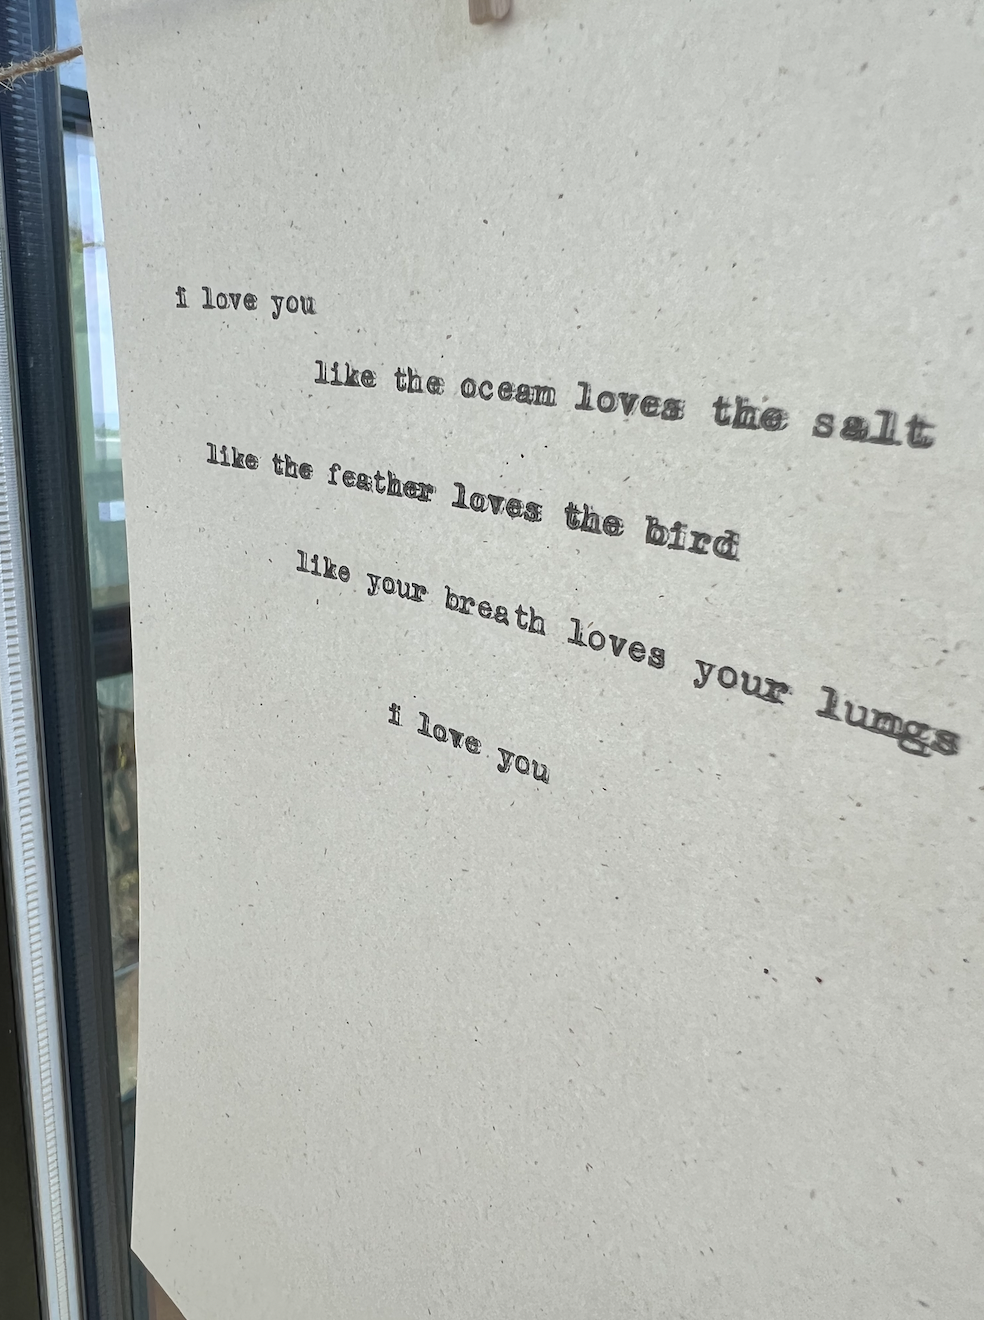 i love you
like the ocean loves the salt
like the feather loves the bird
like your breath loves your lungs
i love you